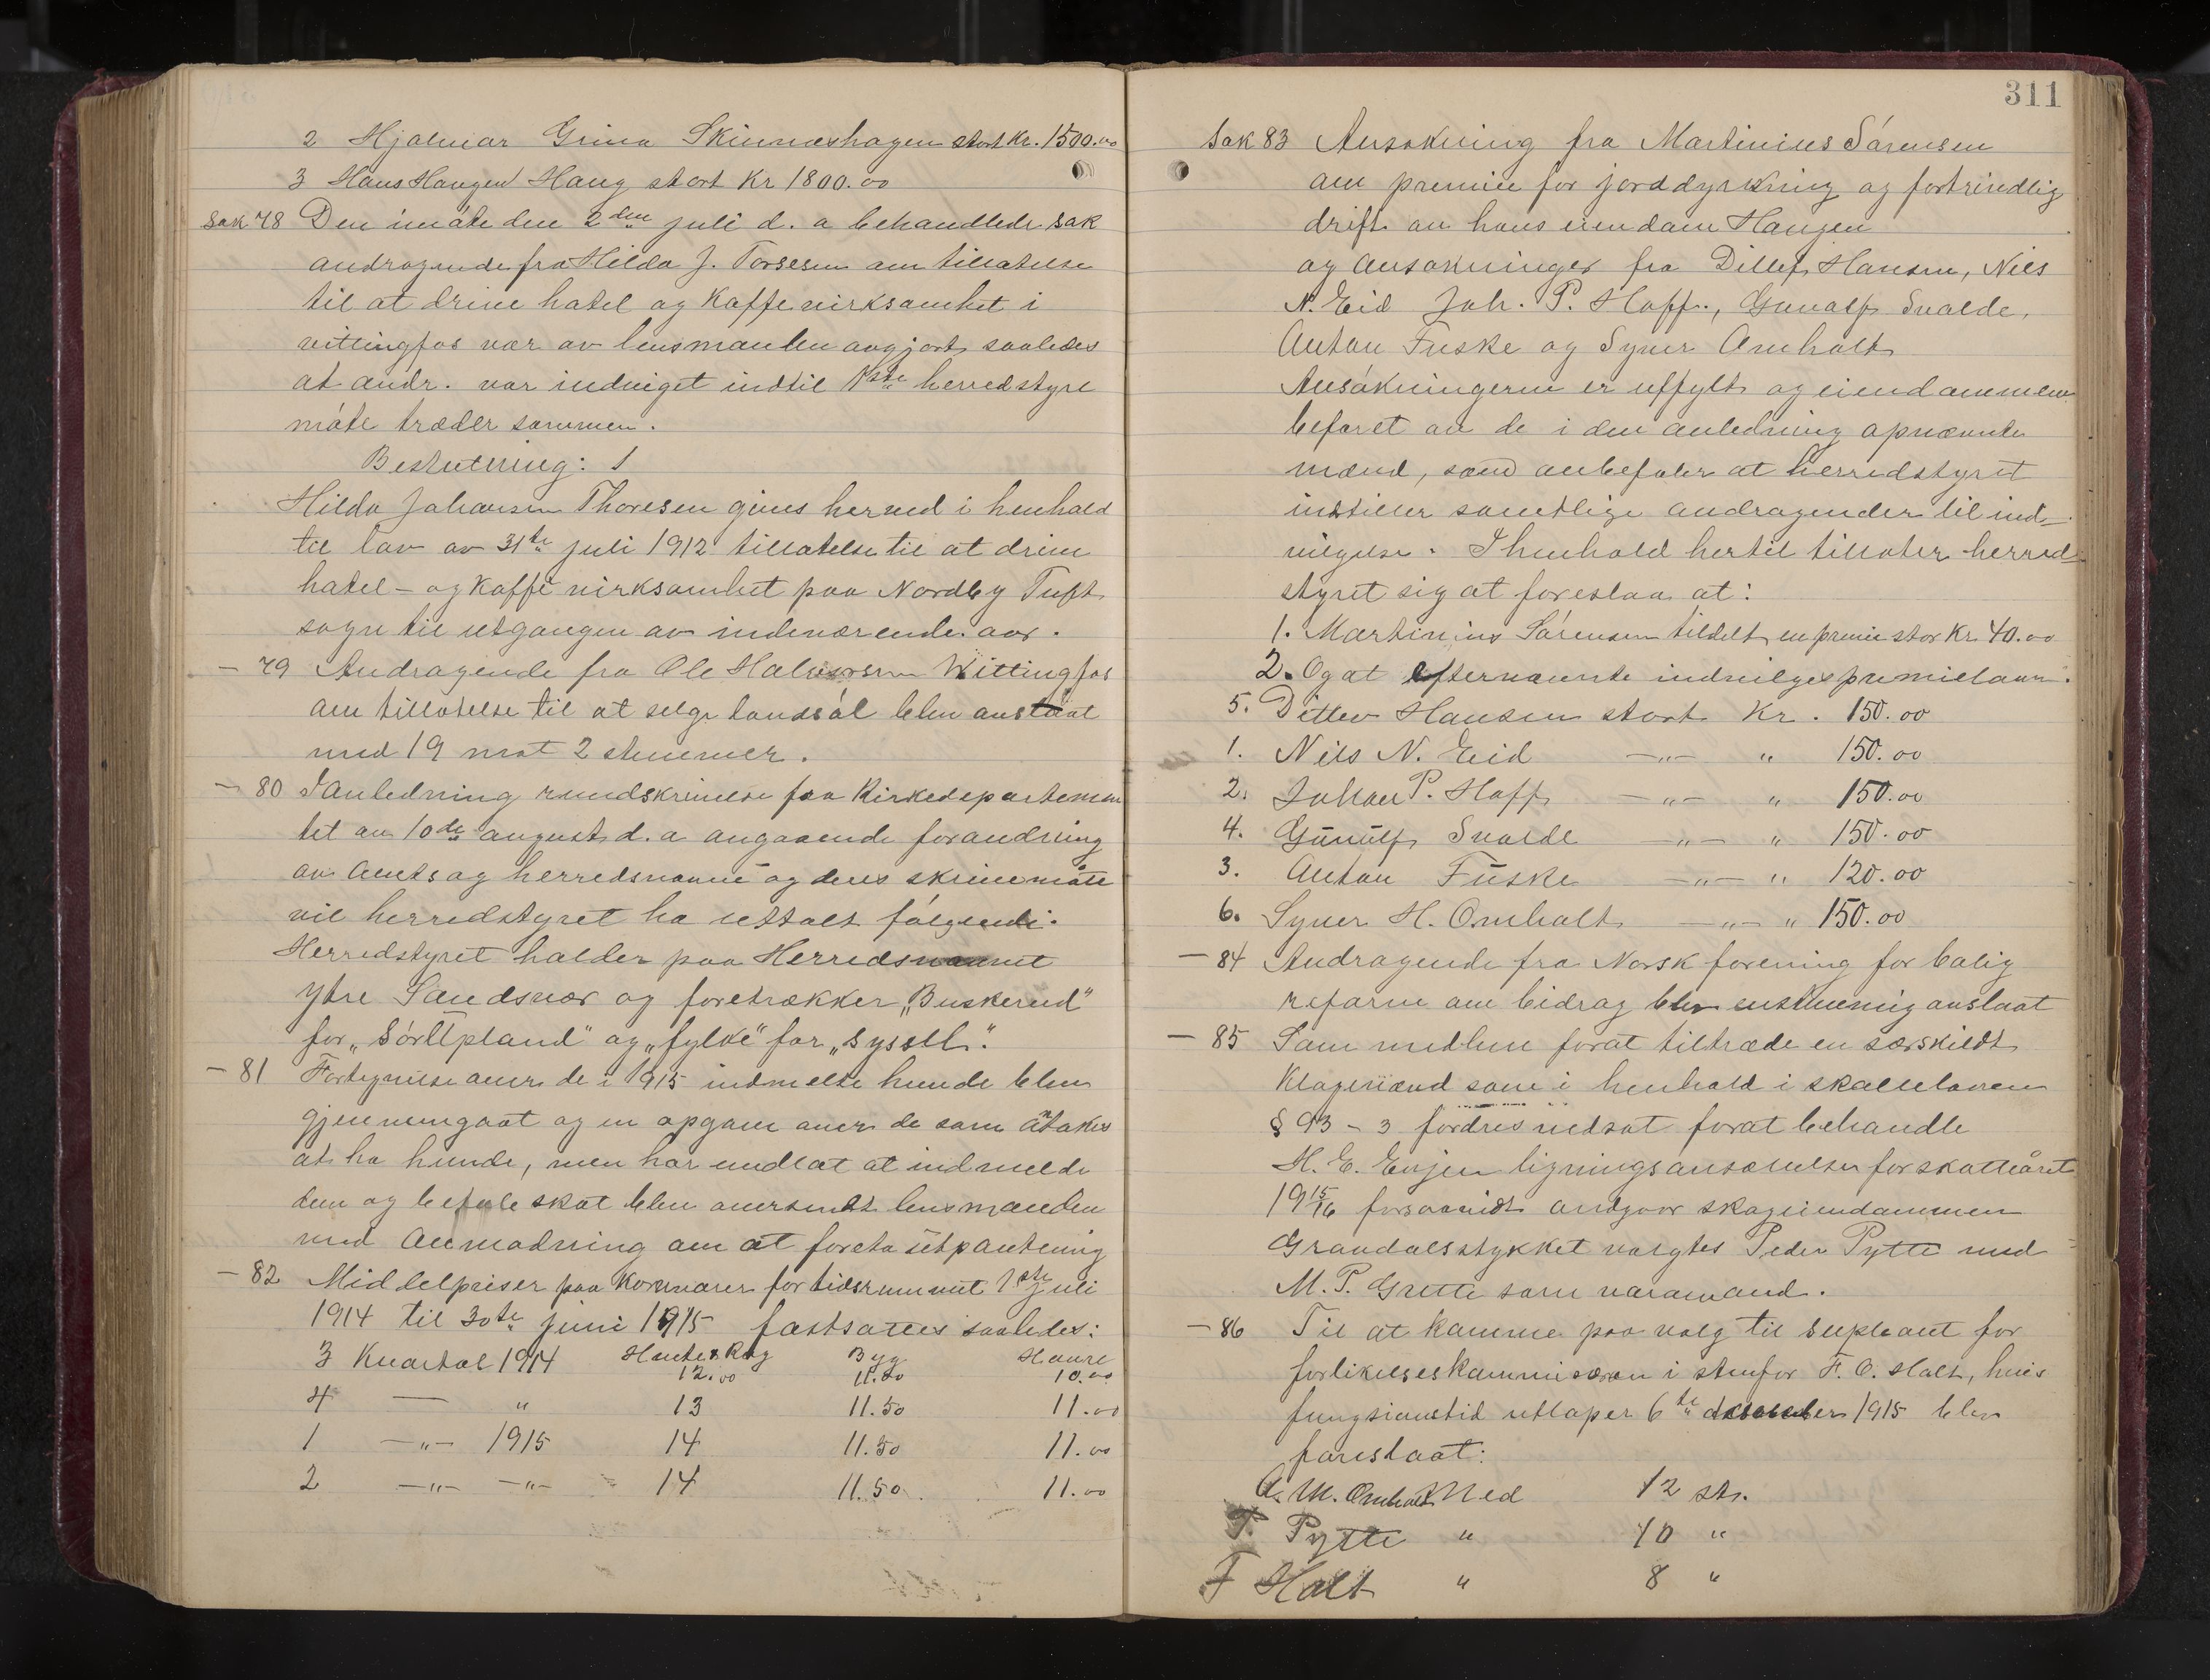 2 Hjalmar Grina Skinnæshagen stort Kr. 1500.00
3 Hans Haugen Haug stort Kr 1800.00
Sak 78 Den i møte den 2den juli d. a behandlede sak
andragende fra Hilda J. Torsesen om tillatelse
til at drive hotel og Kaffevirksomhet i
vittingfos var av lensmanden avgjort saaledes
at andr. var indvilget indtil 1ste herredstyre
møte træder sammen.
Beslutning: 1
Hilda Johansen Thoresen gives herved i henhold
til lov av 31te juli 1912 tillatelse til at drive
hotel- og Kaffe virksomhet paa Nordby Tuft
sogn til utgangen av indeværende aar.
- 79 Andragende fra Ole Halvorsen Wittingfos
om tillatelse til at selge landsøl blev avslaat
med 19 mot 2 stemmer.
- 80 I anledning rundskrivelse fra Kirkedepartemen
tet av 10de august d. a angaaende forandring
av Amts og herredsnavne og deres skrivemåte
vil herredstyret ha uttalt følgende:
Herredstyret holder paa Herredsnavnet
Ytre Sandsvær og foretrækker „Buskerud"
for „Sørupland" og „fylke" for „syssel".
- 81 Fortegnelse over de i 1915 indmelte hunde blev
gjennemgaat og en opgave over de som åtakes
at ha hunde, men har undlat at indmelde
dem og befale skat blev oversendt lensmanden
med Anmodning om at foreta utpantning
- 82 Middelpriser paa Kornvarer for tidsrummet 1ste juli
1914 til 30te juni 1915 fastsattes saaledes:
3 Kvartal 1914 Hvete & Rug Byg Havre
12.00 11.50 10.00
4 — " 13 11.50 11.00
1 —"— 1915 14 11.50 11.00
2 —"— —"— 14 11.50 11.00
311
Sak 83 Ansøkning fra Martinius Sørensen
om premie for jorddyrkning og fortrindlig
drift av hans eiendom Haugen
og Ansøkninger fra Ditlef Hansen, Nils
N. Eid Joh. P. Hoff., Gunulf Svalde,
Anton Fuske og Syver Omholt
Ansøkningerne er utfylt og eiendommene
befaret av de i den anledning opnævnte
mænd, som anbefaler at herredstyret
instiller samtlige andragender til ind-
vilgelse. I henhold hertil tillater herred-
styret sig at foreslaa at:
1. Martinius Sørensen tildelt en premie stor Kr 40.00
2. Og at efternævnte indvilges premielaan.
5. Ditlev Hansen stort Kr. 150.00
1. Nils N. Eid —"— " 150.00
2. Johan P. Hoff —"— " 150.00
4. Gunulf Svalde —"— " 150.00
3. Anton Fuske —"— " 120.00
6. Syver H. Omholt —"— " 150.00
- 84 Andragende fra Norsk forening for bolig
reform om bidrag blev enstemmig avslaat
- 85 Som medlem forat tiltræde en særskildt
Klagenævnd som i henhold i skatteloven
§ 93 - 3 fordres nedsat forat behandle
H. E. Enjen ligningsansættelse for skatteåret
1915/16 forsaavidt angaar skogeiendommen
Grandalsstykket valgtes Peder Pytte med
M. P. Grette som varamand.
- 86 Til at komme paa valg til supleant for
forlikelseskommisæren i stenfor F. O. Holt, hvis
fungsionstid utløper 6te december 1915 blev
foreslaat:
A. M. Omholt Med 12 st.
P. Pytte " 10 "
F Holt " 8 "